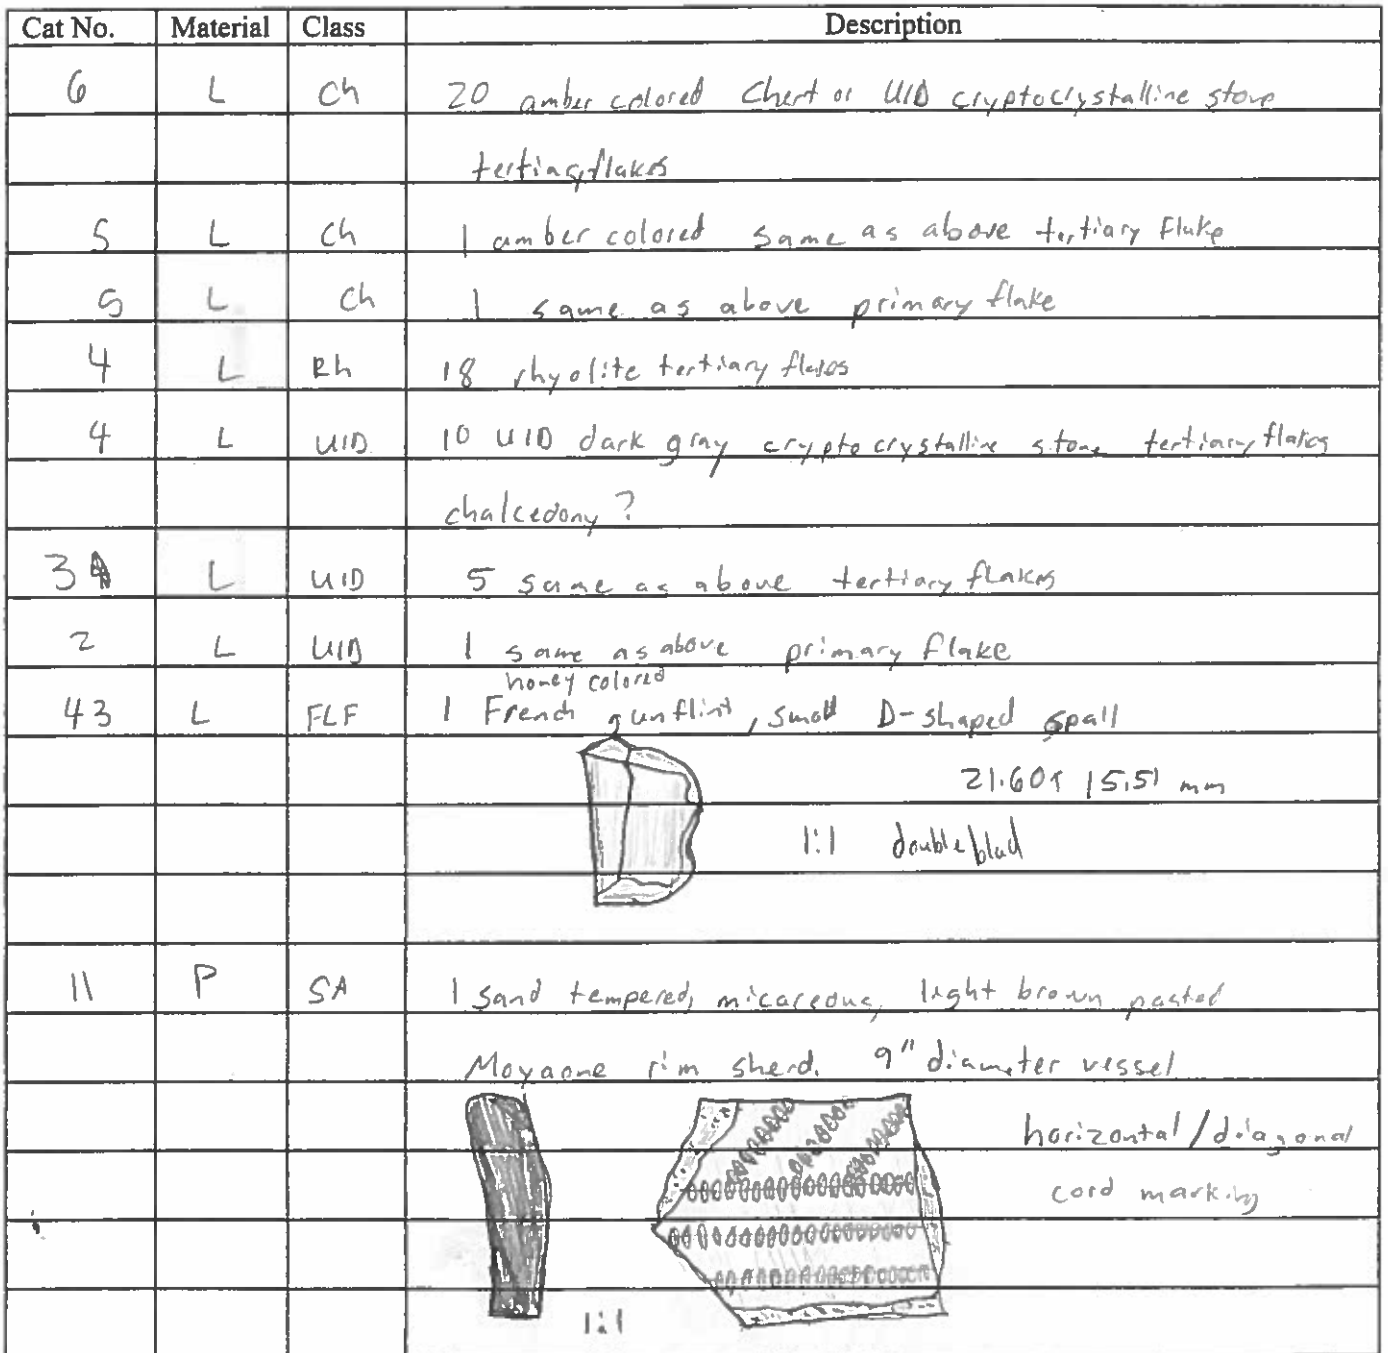 Cat No. Material Class Description
6 L Ch 20 amber colored Chert or UID cryptocrystalline stone
tertiary flakes
5 L Ch 1 amber colored same as above tertiary flake
5 L Ch 1 same as above primary flake
4 L Rh 18 rhyolite tertiary flakes
4 L UID 10 UID dark gray cryptocrystalline stone tertiary flakes
chalcedony ?
3 L UID 5 same as above tertiary flakes
2 L UID 1 same as above primary flake
honey colored
43 L FLF 1 French gunflint, small D-shaped spall
21.60 15.51 mm
1:1 double
11 P SA 1 Sand tempered, micaceous, light brown pasted
Moyaone rim sherd. 9" diameter vessel
horizontal/diagonal
cord marking
1:1